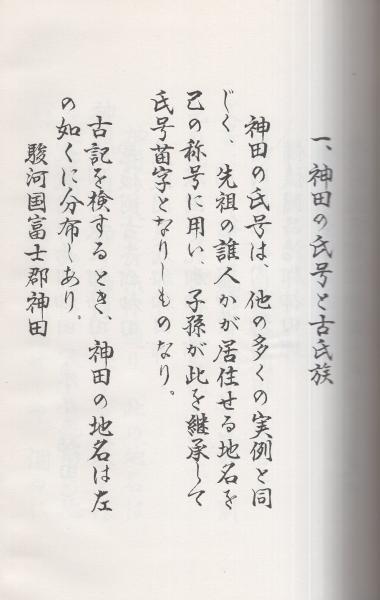 一、神田の氏号と古氏族
神田の氏号は、他の多くの実例と同
じく、先祖の誰人かが居住せる地名を
己の称号に用い、子孫が此を継承して
氏号苗字となりしものなり。
古記を検するとき、神田の地名は左
の如くに分布しあり。
駿河国富士郡神田